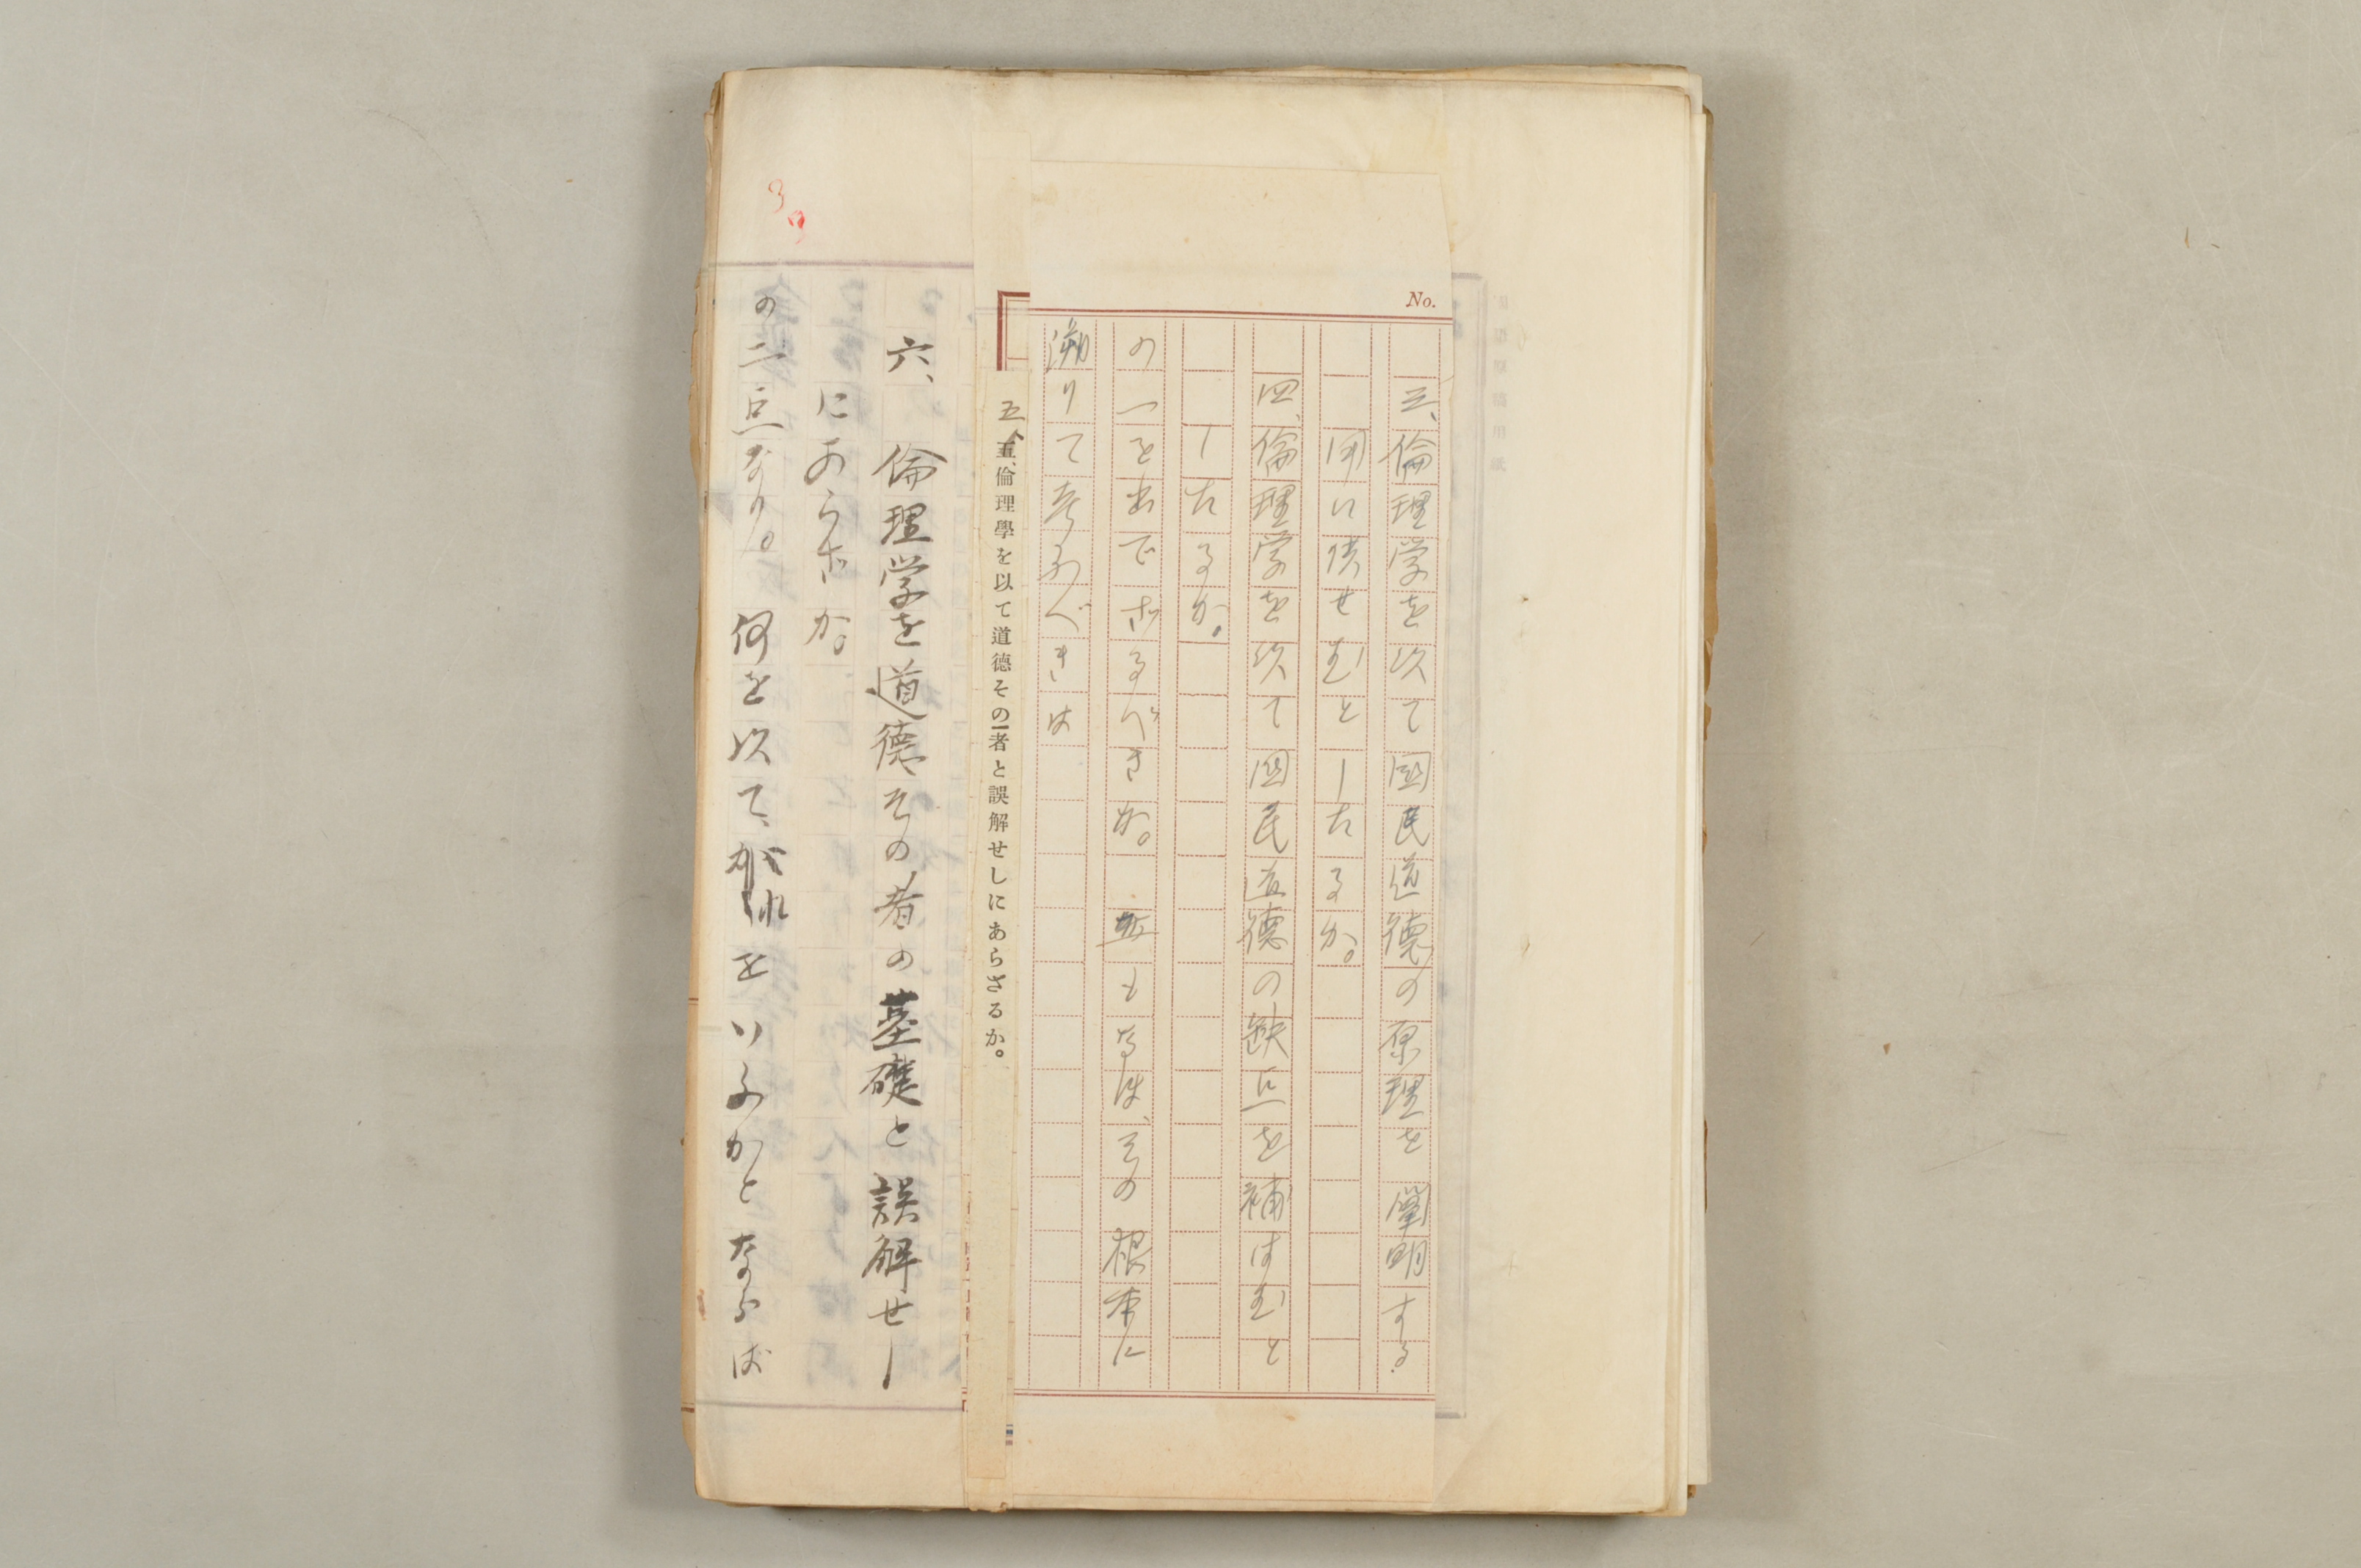 No.
三、倫理学を以て国民道徳の原理を闡明する
用に供せむとしたるか。
四、倫理学を以て国民道徳の缺点を補はむと
したるか。
の一を出でざるべきか。尚もなほ、その根本に
溯りて考ふべきは
五、倫理學を以て道德その者と誤解せしにあらざるか。
六、倫理学を道徳その者の基礎と誤解せし
にあらざか。
の二点なり。何を以て、かれをいふかとならば